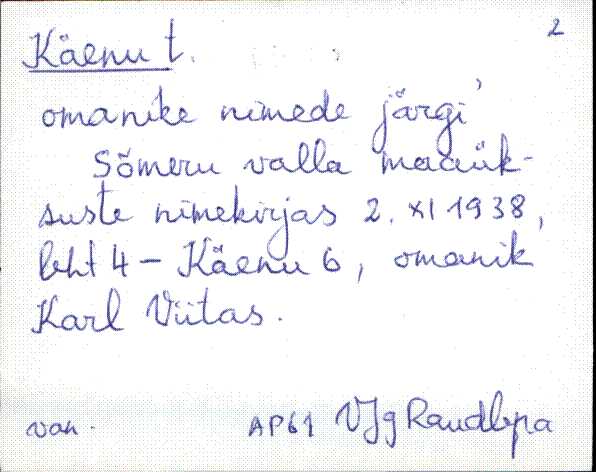 2
Käenu t.
omanike nimede järgi,
Sõmeru valla maaük-
suste nimekirjas 2. XI 1938,
leht 4 – Käenu 6, omanik
Karl Viitas.
van. AP61 VJg Raudlepa